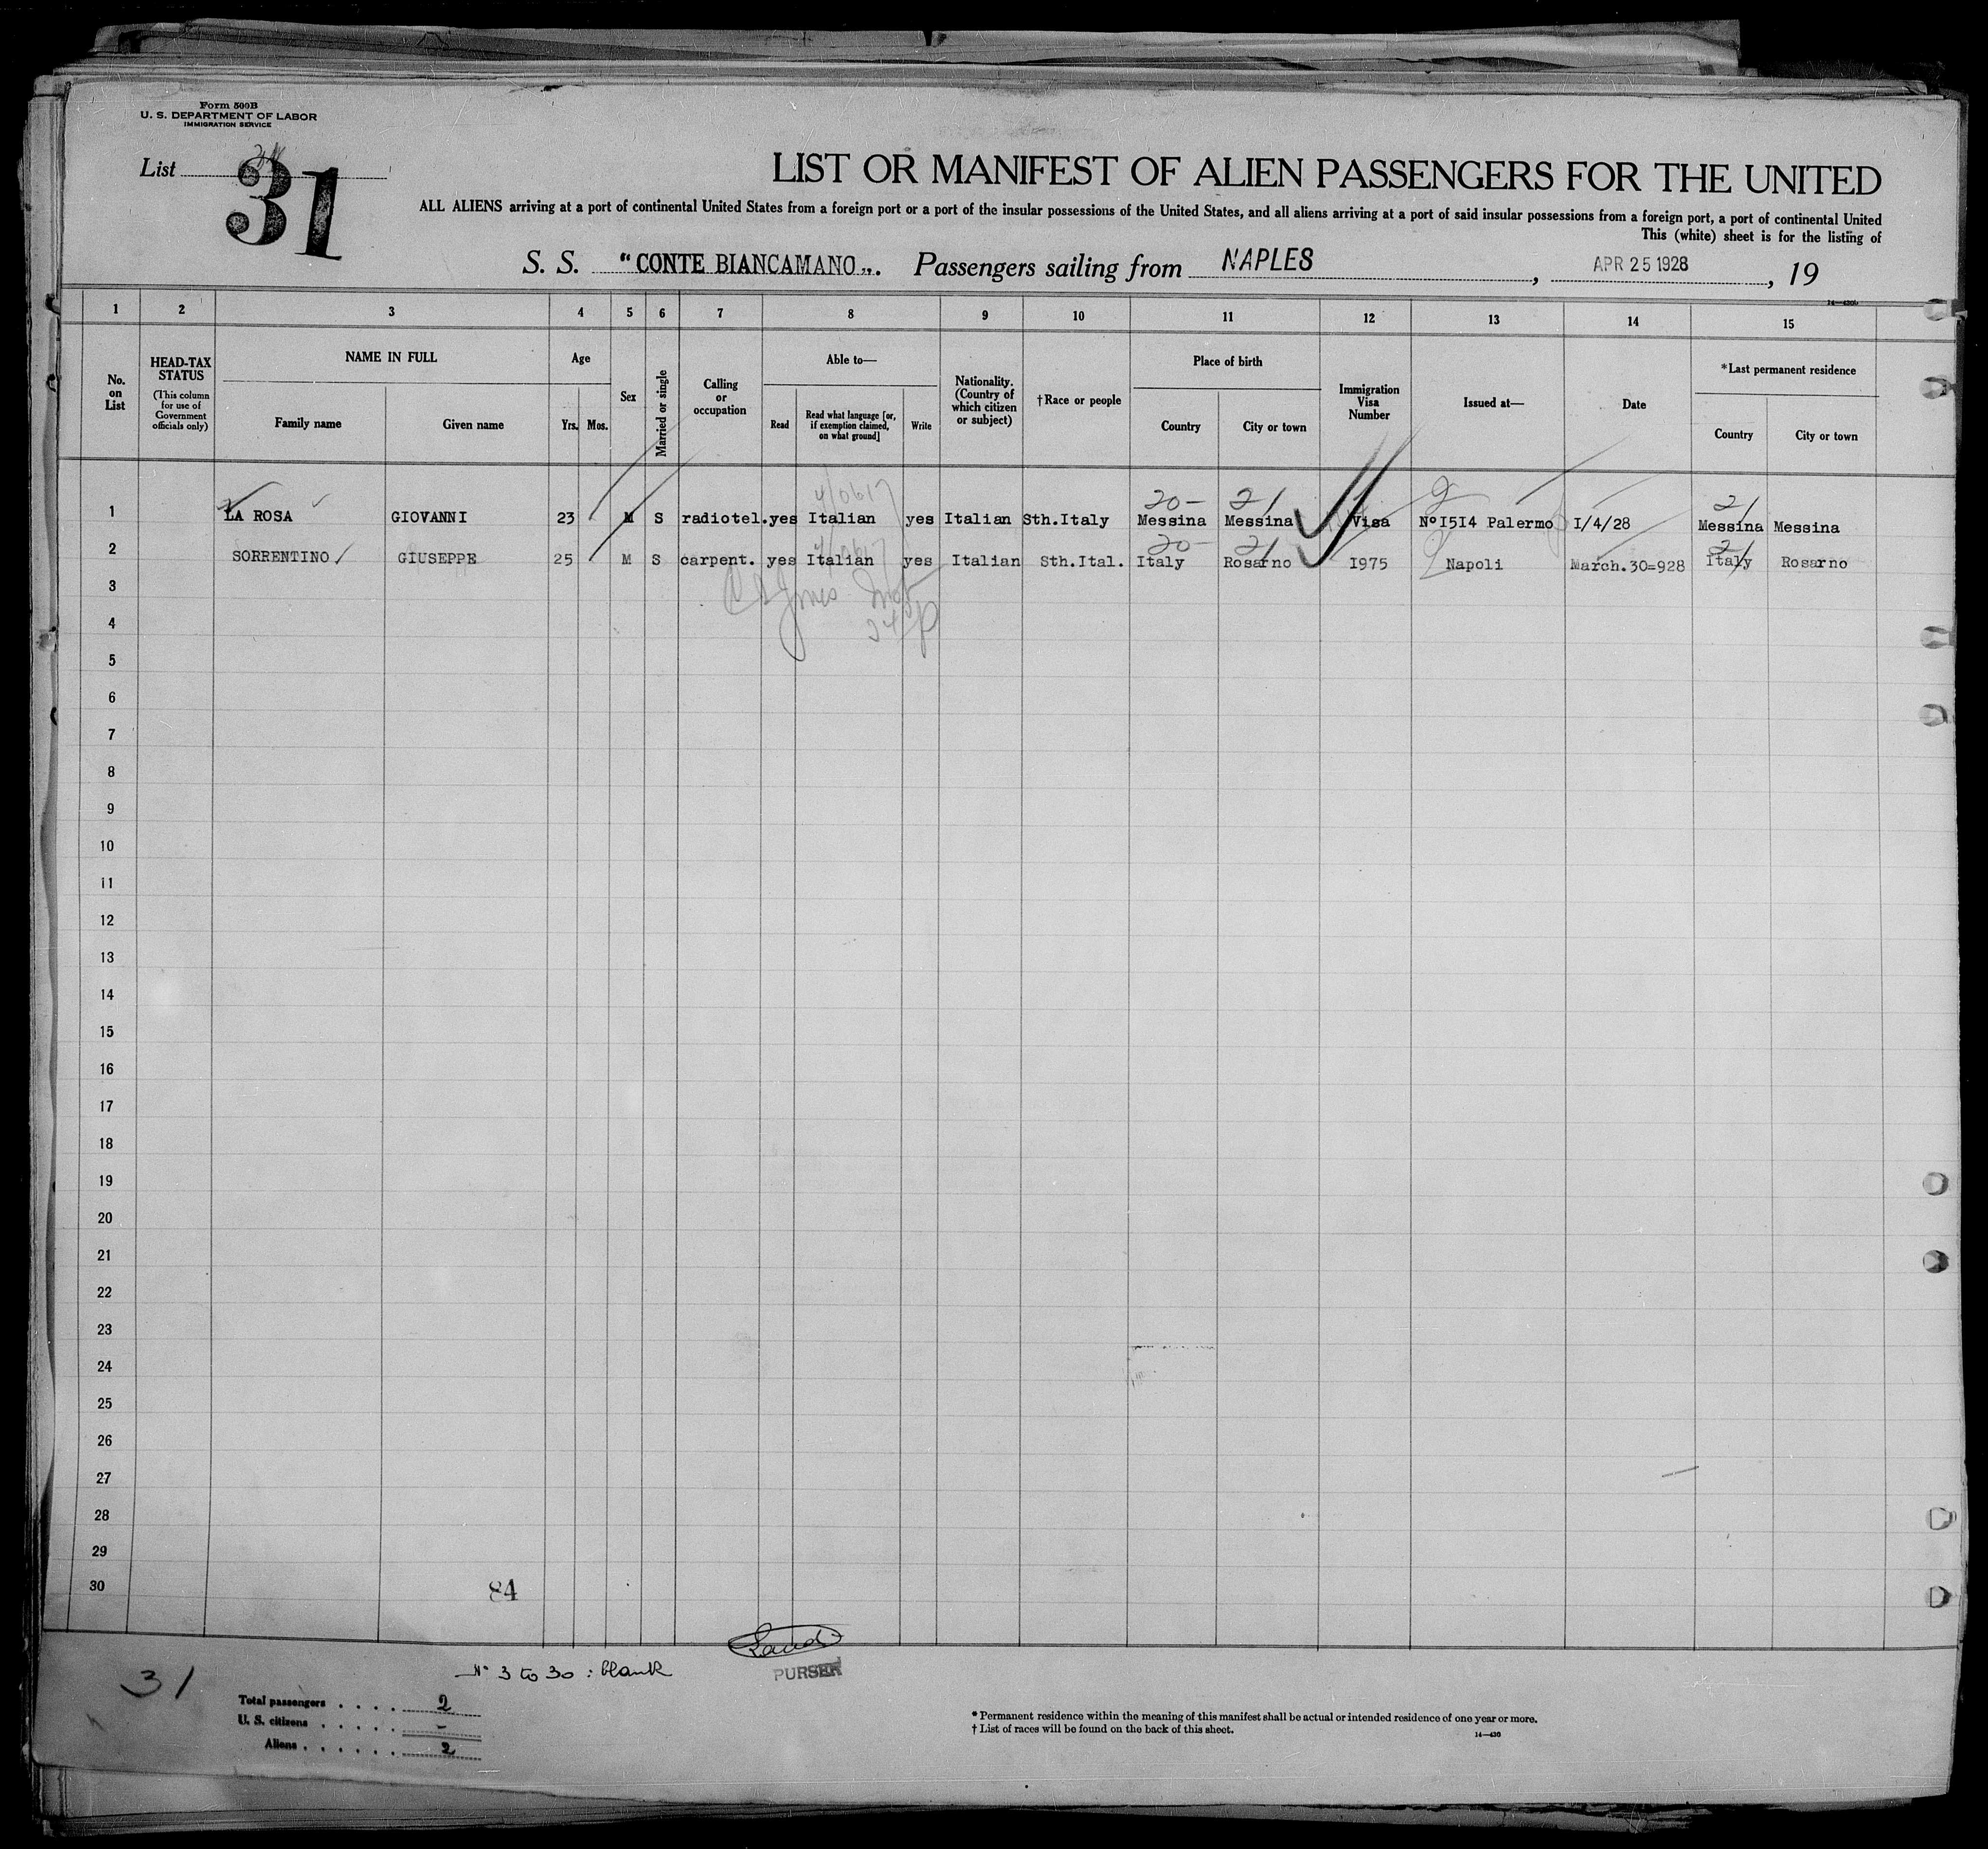 Form 500B
U. S. DEPARTMENT OF LABOR
IMMIGRATION SERVICE
List
31
LIST OR MANIFEST OF ALIEN PASSENGERS FOR THE UNITED
ALL ALIENS arriving at a port of continental United States from a foreign port or a port of the insular possessions of the United States, and all aliens arriving at a port of said insular possessions from a foreign port, a port of continental United
This (white) sheet is for the listing of
S. S. "CONTE BIANCAMANO". Passengers sailing from NAPLES, APR 25 1928, 19
1 2 3 4 5 6 7 8 9 10 11 12 13 14 15
No. on List
HEAD-TAX STATUS
(This column for use of Government officials only)
NAME IN FULL
Family name Given name
Age
Yrs. Mos.
Sex
Married or single
Calling or occupation
Able to—
Read
Read what language [or, if exemption claimed, on what ground]
Write
Nationality. (Country of which citizen or subject)
†Race or people
Place of birth
Country City or town
Immigration Visa Number
Issued at—
Date
*Last permanent residence
Country City or town
20- 21 21
1 LA ROSA GIOVANNI 23 M S radiotel. yes Italian yes Italian Sth.Italy Messina Messina Visa Nº I5I4 Palermo I/4/28 Messina Messina
20- 21 21
2 SORRENTINO GIUSEPPE 25 M S carpent. yes Italian yes Italian Sth.Ital. Italy Rosarno I975 Napoli March.30=928 Italy Rosarno
3
4
5
6
7
8
9
10
11
12
13
14
15
16
17
18
19
20
21
22
23
24
25
26
27
28
29
30
84
PURSER
31
Nº 3 to 30 : blank
Total passengers . . . . 2
U. S. citizens . . . . . -
Aliens . . . . . . 2
* Permanent residence within the meaning of this manifest shall be actual or intended residence of one year or more.
† List of races will be found on the back of this sheet.
14—430